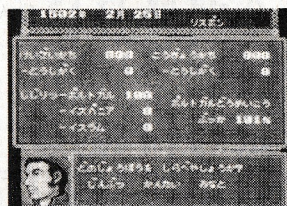 1502ねん 2月 26日
リスボン
けいざいかち 000 こうぎょうかち 000
ーとうしがく 0 ーとうしがく 0
しじりつーポルトガル 100
ーイスパニア 0
ーイスラム 0
ポルトガルどうめいこう
ぶっか 101%
どのじょうほうを しらべやしょうか?
じんぶつ かんたい みなと